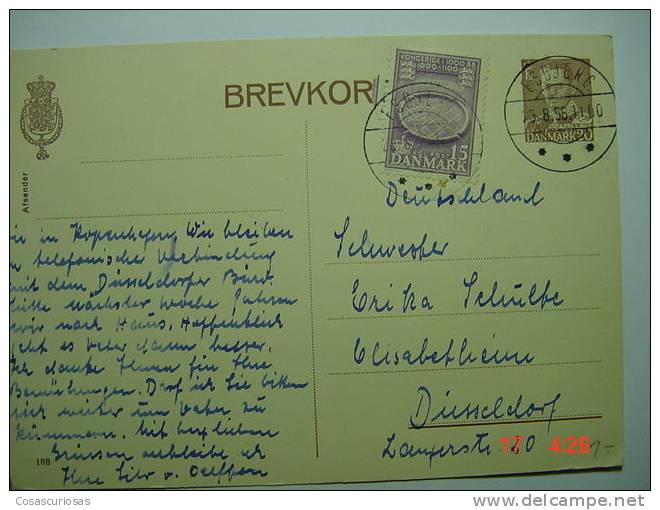 BREVKOR
KONGERIGE I 1000 ÅR
1000 A 1100
15
DANMARK
DANMARK 20
8.56.
Afsender
Deutschland
Schwester
Erika Schulte
Elisabethheim
Düsseldorf
20
4:26
1-
in Kopenhagen Wir bleiben
telefonischer Verbindung
mit dem Düsseldorfer Büro.
Mitte nächster Woche fahren
wir nach Haus. Hoffentlich
geht es Vater dann besser.
Ich danke Ihnen für Ihre
Bemühungen. Darf ich Sie bitten
sich weiter um Vater zu
kümmern. Mit herzlichen
Grüssen verbleibe ich
Ihre
188
Cosascuriosas
delcampe.net